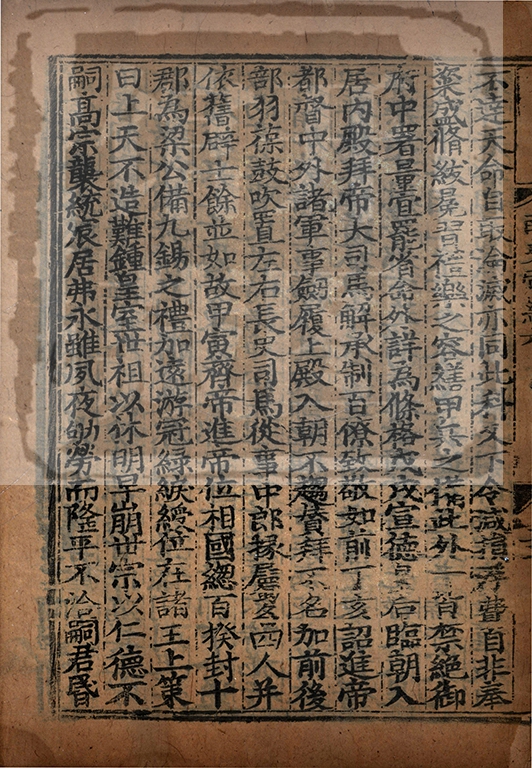 不達天命自取淪滅亦同此科又下令減損浮費自非奉
粢盛脩紱冕習禮樂之容繕甲兵之備此外一皆禁絕御
府中署量宜罷省命外詳為條格戊戌宣德皇后臨朝入
居內殿拜帝大司馬解承制百僚致敬如前丁亥詔進帝
都督中外諸軍事劔履上殿入朝不趨贊拜不名加前後
部羽葆鼓吹置左右長史司馬從事中郎掾屬各四人并
依舊辟士餘並如故甲寅齊帝進帝位相國緫百揆封十
郡為梁公備九錫之禮加遠游冠綠綟綬位在諸王上策
曰上天不造難鍾皇室世祖以休明早崩世宗以仁德不
嗣高宗襲統宸居弗永雖夙夜劬勞而隆平不洽嗣君昏